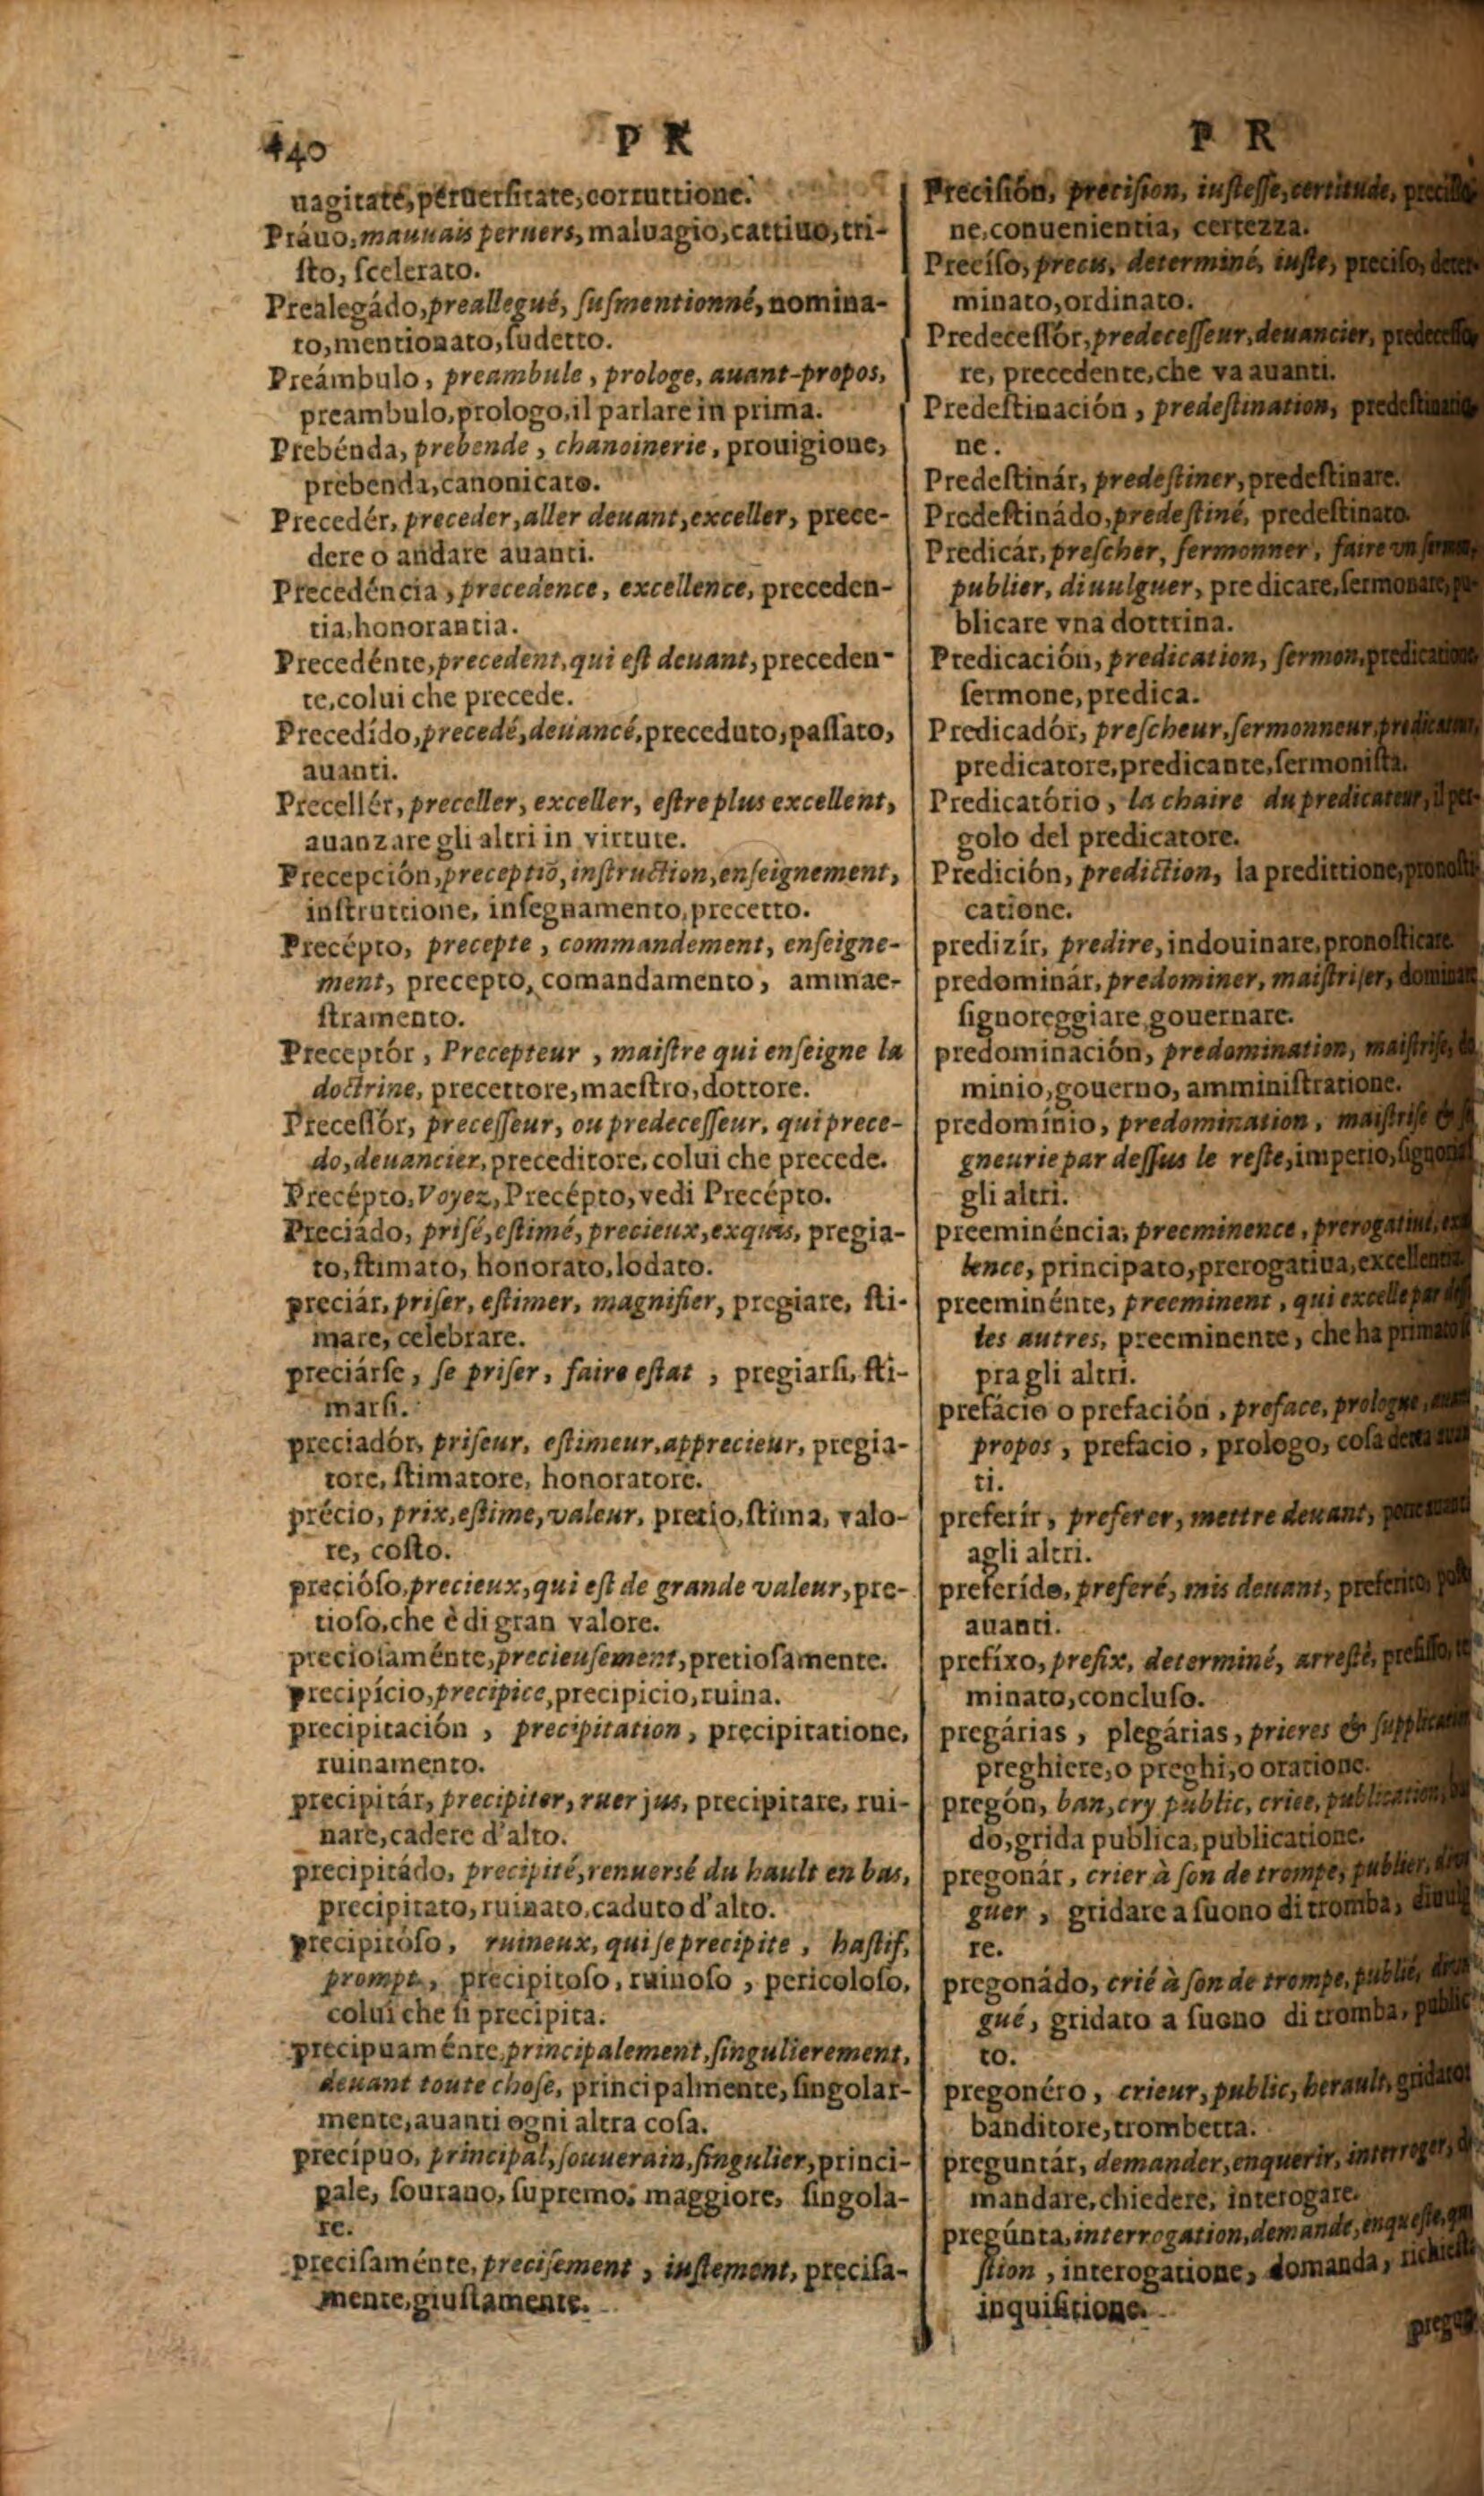 440
P R
P R
uagitate, peruersitate, corruttione.
Práuo, mauuais peruers, maluagio, cattiuo, tri-
ſto, ſcelerato.
Prealegádo, preallegué, ſuſmentionné, nomina-
to, mentionato, ſudetto.
Preámbulo, preambule, prologe, auant-propos,
preambulo, prologo, il parlare in prima.
Prebénda, prebende, chanoinerie, prouigione,
prebenda, canonicato.
Precedér, preceder, aller deuant, exceller, prece-
dere o andare auanti.
Precedéncia, precedence, excellence, preceden-
tia, honorantia.
Precedénte, precedent, qui eſt deuant, preceden-
te, colui che precede.
Precedído, precedé, deuancé, preceduto, paſſato,
auanti.
Precellér, preceller, exceller, eſtre plus excellent,
auanzare gli altri in virtute.
Precepción, preceptiõ, inſtruction, enſeignement,
inſtruttione, inſegnamento, precetto.
Precépto, precepte, commandement, enſeigne-
ment, precepto, comandamento, ammae-
ſtramento.
Preceptór, Precepteur, maiſtre qui enſeigne la
doctrine, precettore, maeſtro, dottore.
Preceſſór, preceſſeur, ou predeceſſeur, qui prece-
do, deuancier, preceditore, colui che precede.
Precépto, Voyez, Precépto, vedi Precépto.
Preciádo, priſé, eſtimé, precieux, exquis, pregia-
to, ſtimato, honorato, lodato.
preciár, priſer, eſtimer, magnifier, pregiare, ſti-
mare, celebrare.
preciárſe, ſe priſer, faire eſtat, pregiarſi, ſti-
marſi.
preciadór, priſeur, eſtimeur, apprecieur, pregia-
tore, ſtimatore, honoratore.
précio, prix, eſtime, valeur, pretio, ſtima, valo-
re, coſto.
precióſo, precieux, qui eſt de grande valeur, pre-
tioſo, che è di gran valore.
precioſaménte, precieuſement, pretioſamente.
precipício, precipice, precipicio, ruina.
precipitación, precipitation, precipitatione,
ruinamento.
precipitár, precipiter, ruer jus, precipitare, rui-
nare, cadere d'alto.
precipitádo, precipité, renuersé du hault en bas,
precipitato, ruinato, caduto d'alto.
precipitóſo, ruineux, qui ſe precipite, haſtif,
prompt, precipitoſo, ruinoſo, pericoloſo,
colui che ſi precipita.
precipuaménte, principalement, ſingulierement,
deuant toute choſe, principalmente, ſingolar-
mente, auanti ogni altra coſa.
precípuo, principal, ſouuerain, ſingulier, princi-
pale, ſourano, ſupremo, maggiore, ſingola-
re.
preciſaménte, preciſement, iuſtement, preciſa-
mente, giuſtamente.
Preciſión, preciſion, iuſteſſe, certitude,
ne, conuenientia, certezza.
Preciſo, precis, determiné, iuſte, preciſo, deter-
minato, ordinato.
Predeceſſór, predeceſſeur, deuancier, predeceſſo-
re, precedente, che va auanti.
Predeſtinación, predeſtination, predeſtinatio-
ne.
Predeſtinár, predeſtiner, predeſtinare.
Predeſtinádo, predeſtiné, predeſtinato.
Predicár, preſcher, ſermonner, faire vn ſermon,
publier, diuulguer, predicare, ſermonare, pu-
blicare vna dottrina.
Predicación, predication, ſermon, predicatione,
ſermone, predica.
Predicadór, preſcheur, ſermonneur, predicateur,
predicatore, predicante, ſermoniſta.
Predicatório, la chaire du predicateur, il per-
golo del predicatore.
Predición, prediction, la predittione, pronoſti-
catione.
predizír, predire, indouinare, pronoſticare.
predominár, predominer, maiſtriſer, dominare
ſignoreggiare, gouernare.
predominación, predomination, maiſtriſe, do
minio, gouerno, amminiſtratione.
predomínio, predomination, maiſtriſe & ſei
gneurie par deſſus le reſte, imperio,
gli altri.
preeminéncia, preeminence, prerogatiue, excel
lence, principato, prerogatiua, excellentia.
preeminénte, preeminent, qui excelle par deſſ
les autres, preeminente, che ha primato
pra gli altri.
prefácio o prefación, preface, prologue,
propos, prefacio, prologo, coſa detta auan
ti.
preferír, preferer, mettre deuant,
agli altri.
preferído, preferé, mis deuant, preferito,
auanti.
prefíxo, prefix, determiné, arreſté, prefiſſo,
minato, concluſo.
pregárias, plegárias, prieres & ſupplication
preghiere, o preghi, o oratione.
pregón, ban, cry public, criee, publication,
do, grida publica, publicatione.
pregonár, crier à ſon de trompe, publier,
guer, gridare a ſuono di tromba,
re.
pregonádo, crié à ſon de trompe, publié,
gué, gridato a ſuono di tromba,
to.
pregonéro, crieur, public, herault, gridator
banditore, trombetta.
preguntár, demander, enquerir, interroger,
mandare, chiedere, interogare.
pregúnta, interrogation, demande, enqueſte,
ſtion, interogatione, domanda,
inquiſitione.